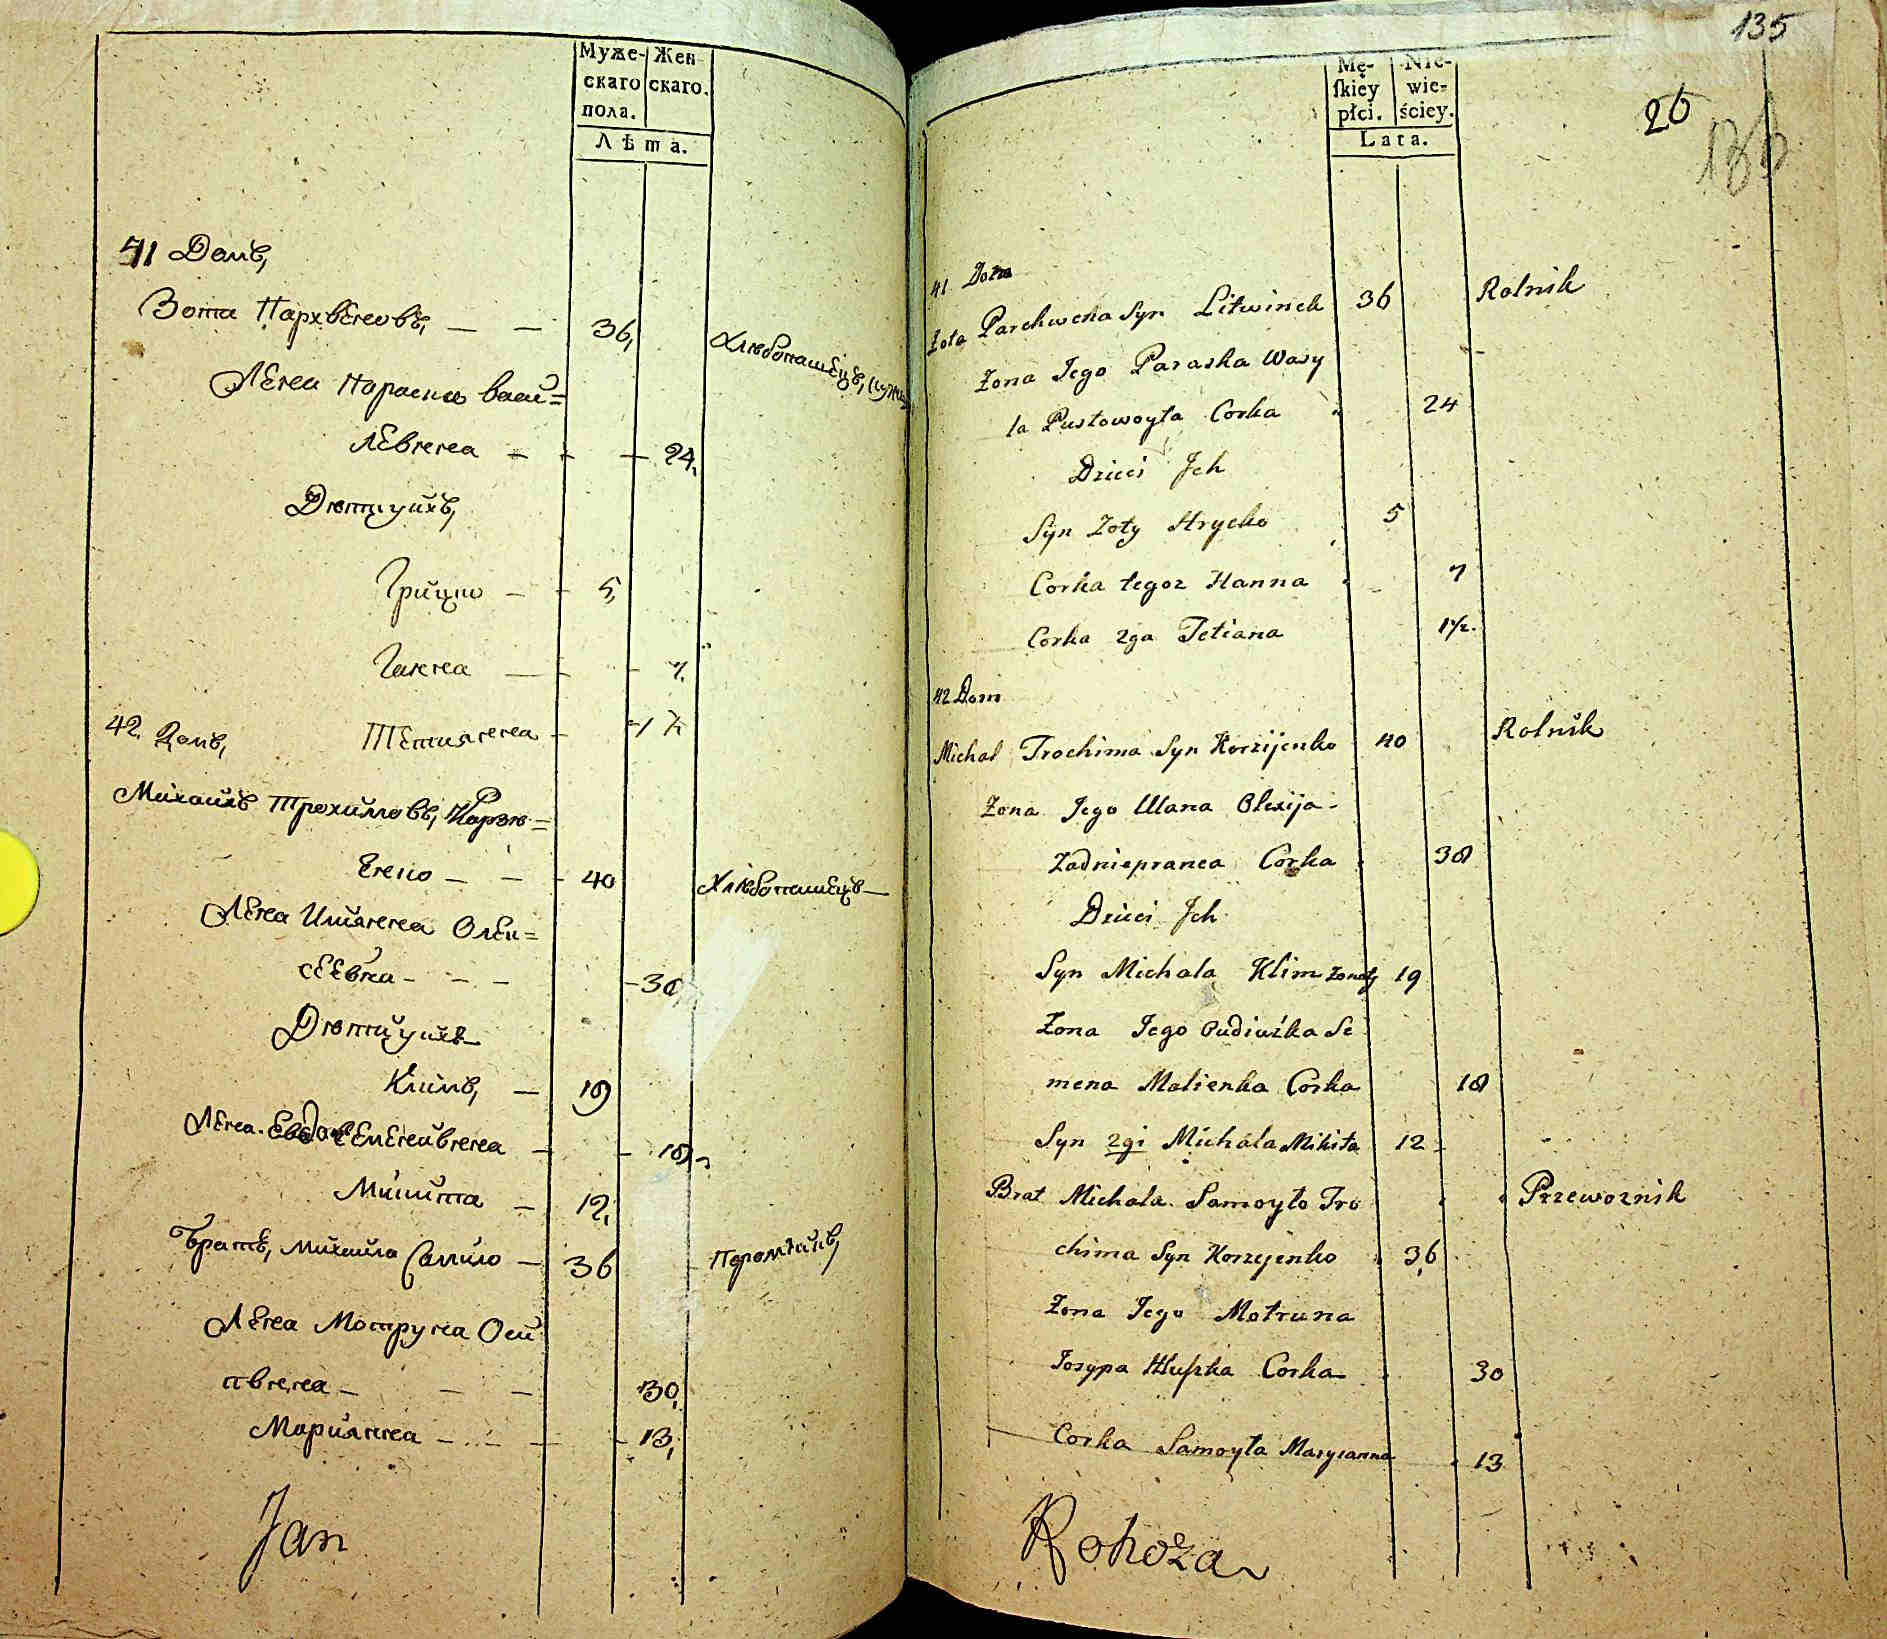 Муже- Жен
скаго скаго.
пола.
Лѣта.
41 Домъ,
Зота Пархвеновъ, — — 36,
Хлебопашецъ,
Жена Параска васи=
левна — — — 24,
Дѣти ихъ,
Грицко — — 5,
Ганна — — — 7.
42 Домъ, Тетиянна — 1 ½
Михаилъ Трохимовъ, Корзѣ=
енко — — — 40 Хлѣбопашецъ —
Жена Улиянна Олек=
сеевна — — — 38
Дѣти ихъ
Климъ, — 19
Жена Семеновнна — — 18
Микита — 12,
Братъ, Михаила Самило — 36
Жена Мотруна Оси
пвнна — — — 30,
Мариянна — — — 13,
Jan
135
26
136
Mę- Nie-
ſkiey wie-
płci. ściey.
Lata.
41 Dom
Zota Parchwena Syn Litwinek 36 Rolnik
Żona Jego Paraska Wasy
la Pustowoyta Corka 24
Dzieci Jch
Syn Zoty Hrycko 5
Corka tegoz Hanna 7
Corka 2ga Tetiana 1½.
42 Dom
Michal Trochima Syn Korzijenko 40 Rolnik
Żona Jego Ulana Olexija-
Zadniepranca Corka 38
Dzieci Jch
Syn Michala Klim żonaty 19
Żona Jego Oudiuźka Se
mena Malienka Corka 18
Syn 2gi Michala Mikita 12
Brat Michala Samoyło Tro Przewoznik
chima Syn Korzyjenko 36
Żona Jego Motruna
Josypa Hluſzka Corka 30
Corka Samoyła Maryianna 13
Rohoza